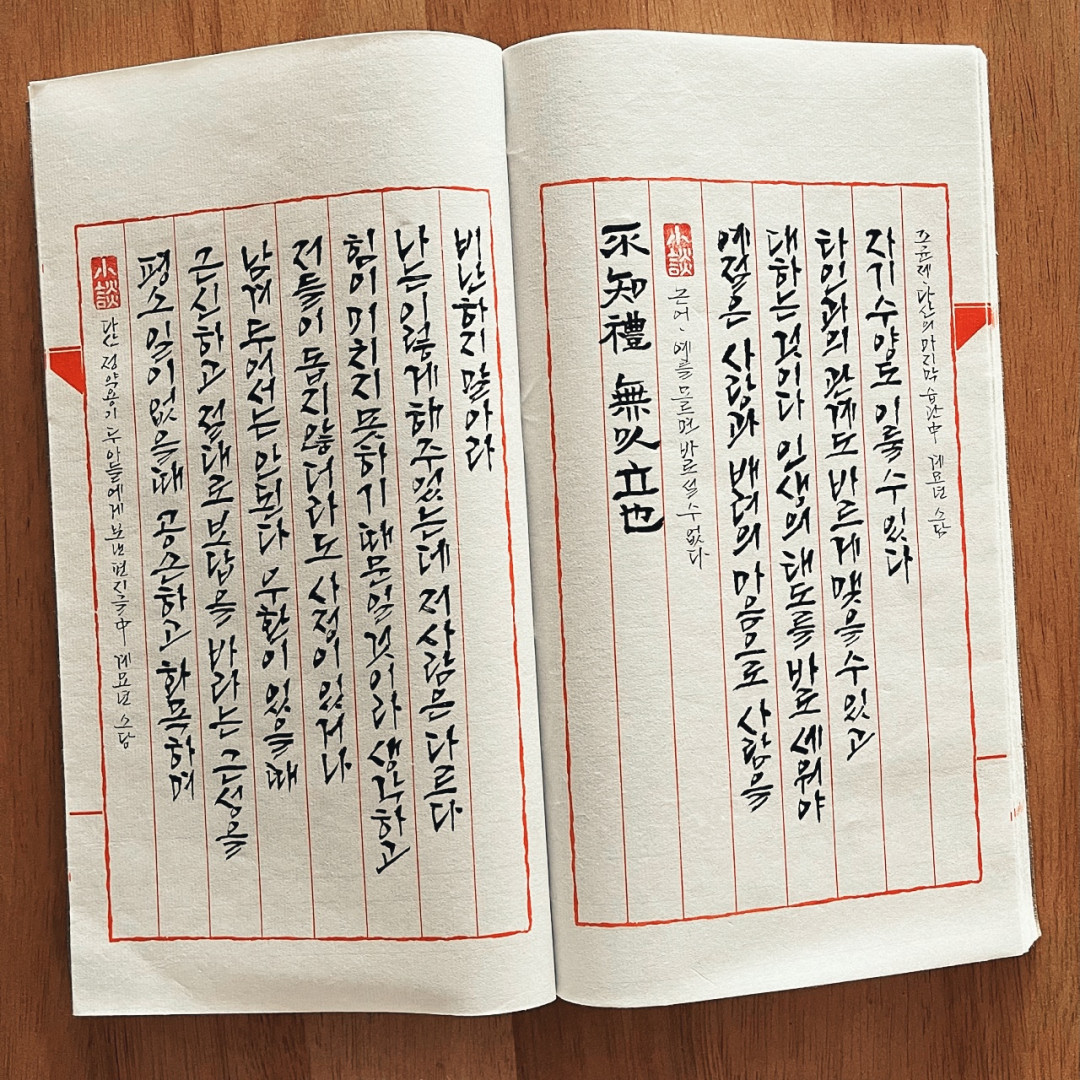 小談
다산 정약용이 두 아들에게 보낸 편지글 中 계묘년 소담
평소 일이 없을때 공손하고 화목하며
근신하고 절대로 보답을 바라는 근성을
남겨 두어서는 안된다 우환이 있을때
저들이 돕지 않더라도 사정이 있거나
힘이 미치지 못하기 때문일 것이라 생각하고
나는 이렇게 해주었는데 저 사람은 다르다
비난하지 말아라
不知禮 無以立也
小談
논어, 예를 모르면 바로 설 수 없다
예절은 사랑과 배려의 마음으로 사람을
대하는 것이다 인생의 태도를 바로 세워야
타인과의 관계도 바르게 맺을 수 있고
자기 수양도 이룰 수 있다
조윤제, 다산의 마지막 습관 中 계묘년 소담